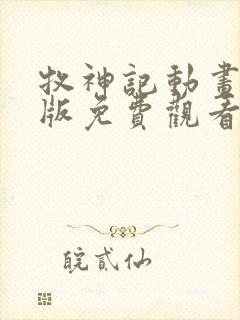 牧神記動畫
版免費觀看
皖貳仙